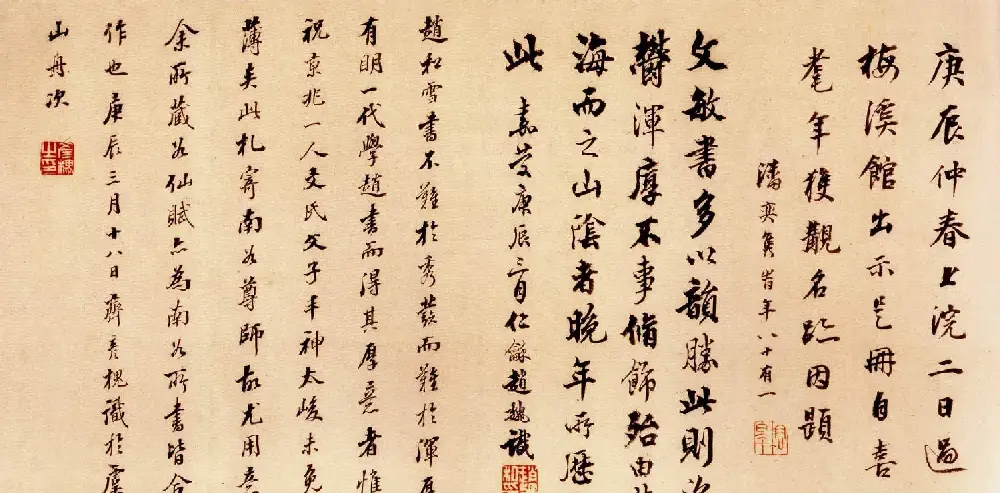 庚辰仲春上浣二日過
梅溪館出示是冊自喜
耄年獲觀名跡因題
潘奕雋時年八十有一
文敏書多以韻勝此則
鬱渾厚不事脩飾殆由
海而之山陰者晚年所歷
此
嘉慶庚辰三月仁龢趙魏識
趙松雪書不難於秀發而難於渾厚
有明一代學趙書而得其厚意者惟
祝京兆一人文氏父子丰神太峻未免
薄矣此札寄南谷尊師故尤用意
余所藏 仙賦亦為南谷所書皆合
作也庚辰三月十八日齊彥槐識於
山舟次